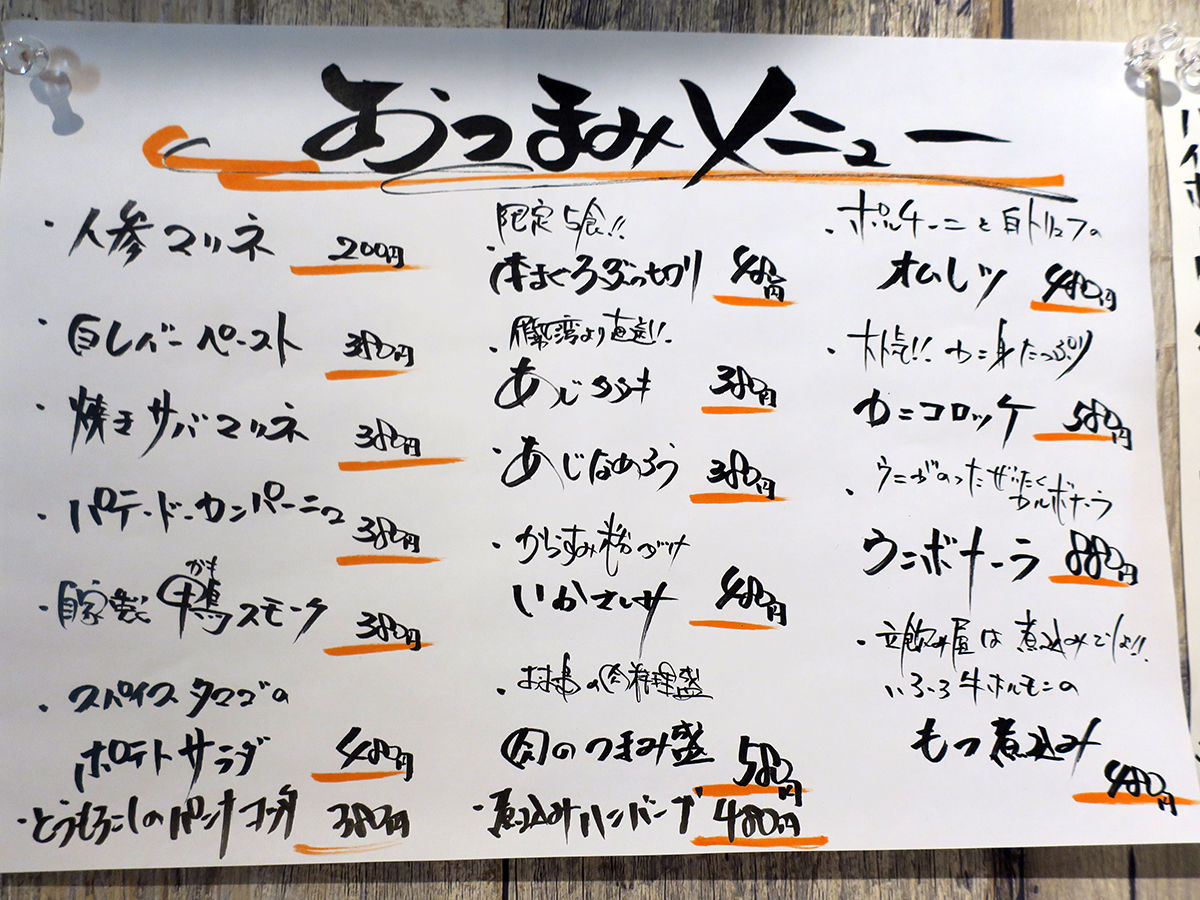 おつまみメニュー
・人参マリネ 200円
・白レバーペースト 380円
・焼きサバマリネ 380円
・パテ・ド・カンパーニュ 380円
・自家製鴨スモーク 380円
かも
・スパイスタマゴの
ポテトサラダ 480円
・とうもろこしのパンナコッタ 380円
限定5食!!
・本まぐろぶっ切り 480円
湾より直送!!
・あじタタキ 380円
・あじなめろう 380円
・からすみ粉がけ
いかさしみ 480円
・の肉料理盛
肉のつまみ盛 580円
・煮込みハンバーグ 480円
・ポルチーニと白トリュフの
オムレツ 480円
・大人気!! カニ身たっぷり
カニコロッケ 580円
・ウニがのったぜいたく
カルボナーラ
ウニボナーラ 880円
・立飲み屋は煮込みでしょ!!
いろいろ牛ホルモンの
もつ煮込み 480円